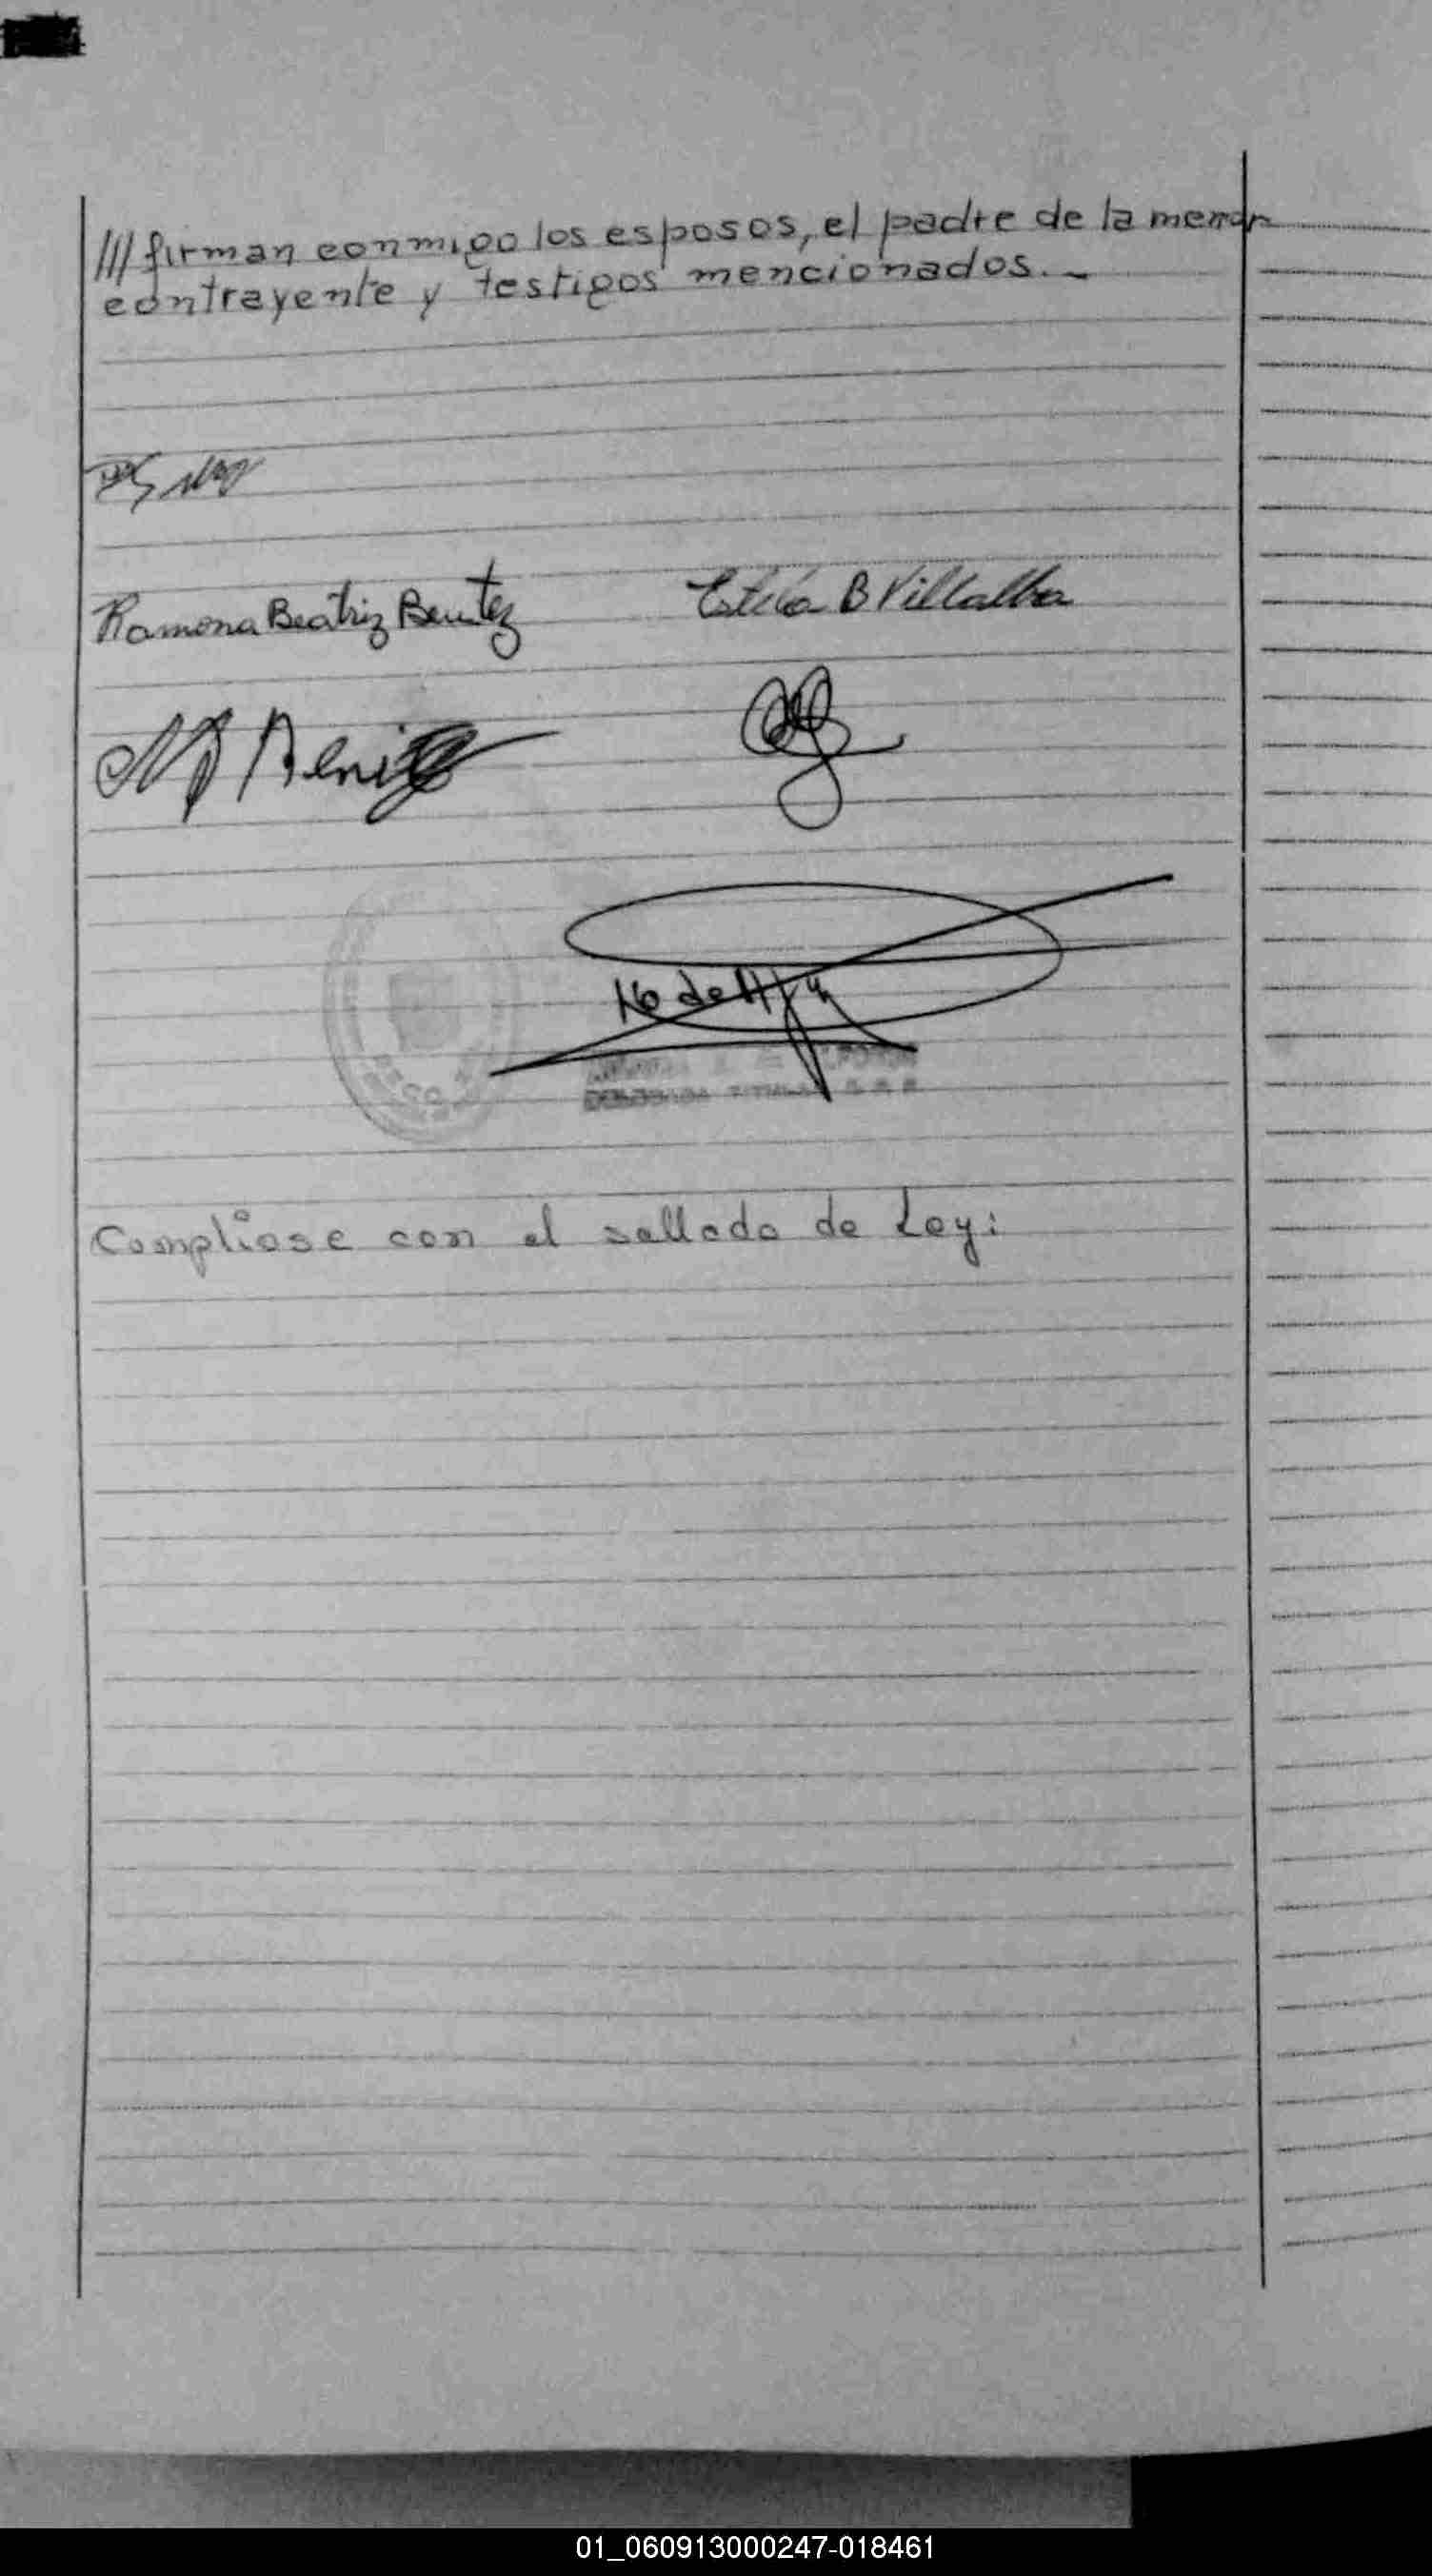 /// firman conmigo los esposos, el padre de la menor
contrayente y testigos mencionados.-
Ramona Beatriz Benitez Estela B Villalba
Benitez
Compliose con el sellado de Ley:
01_060913000247-018461